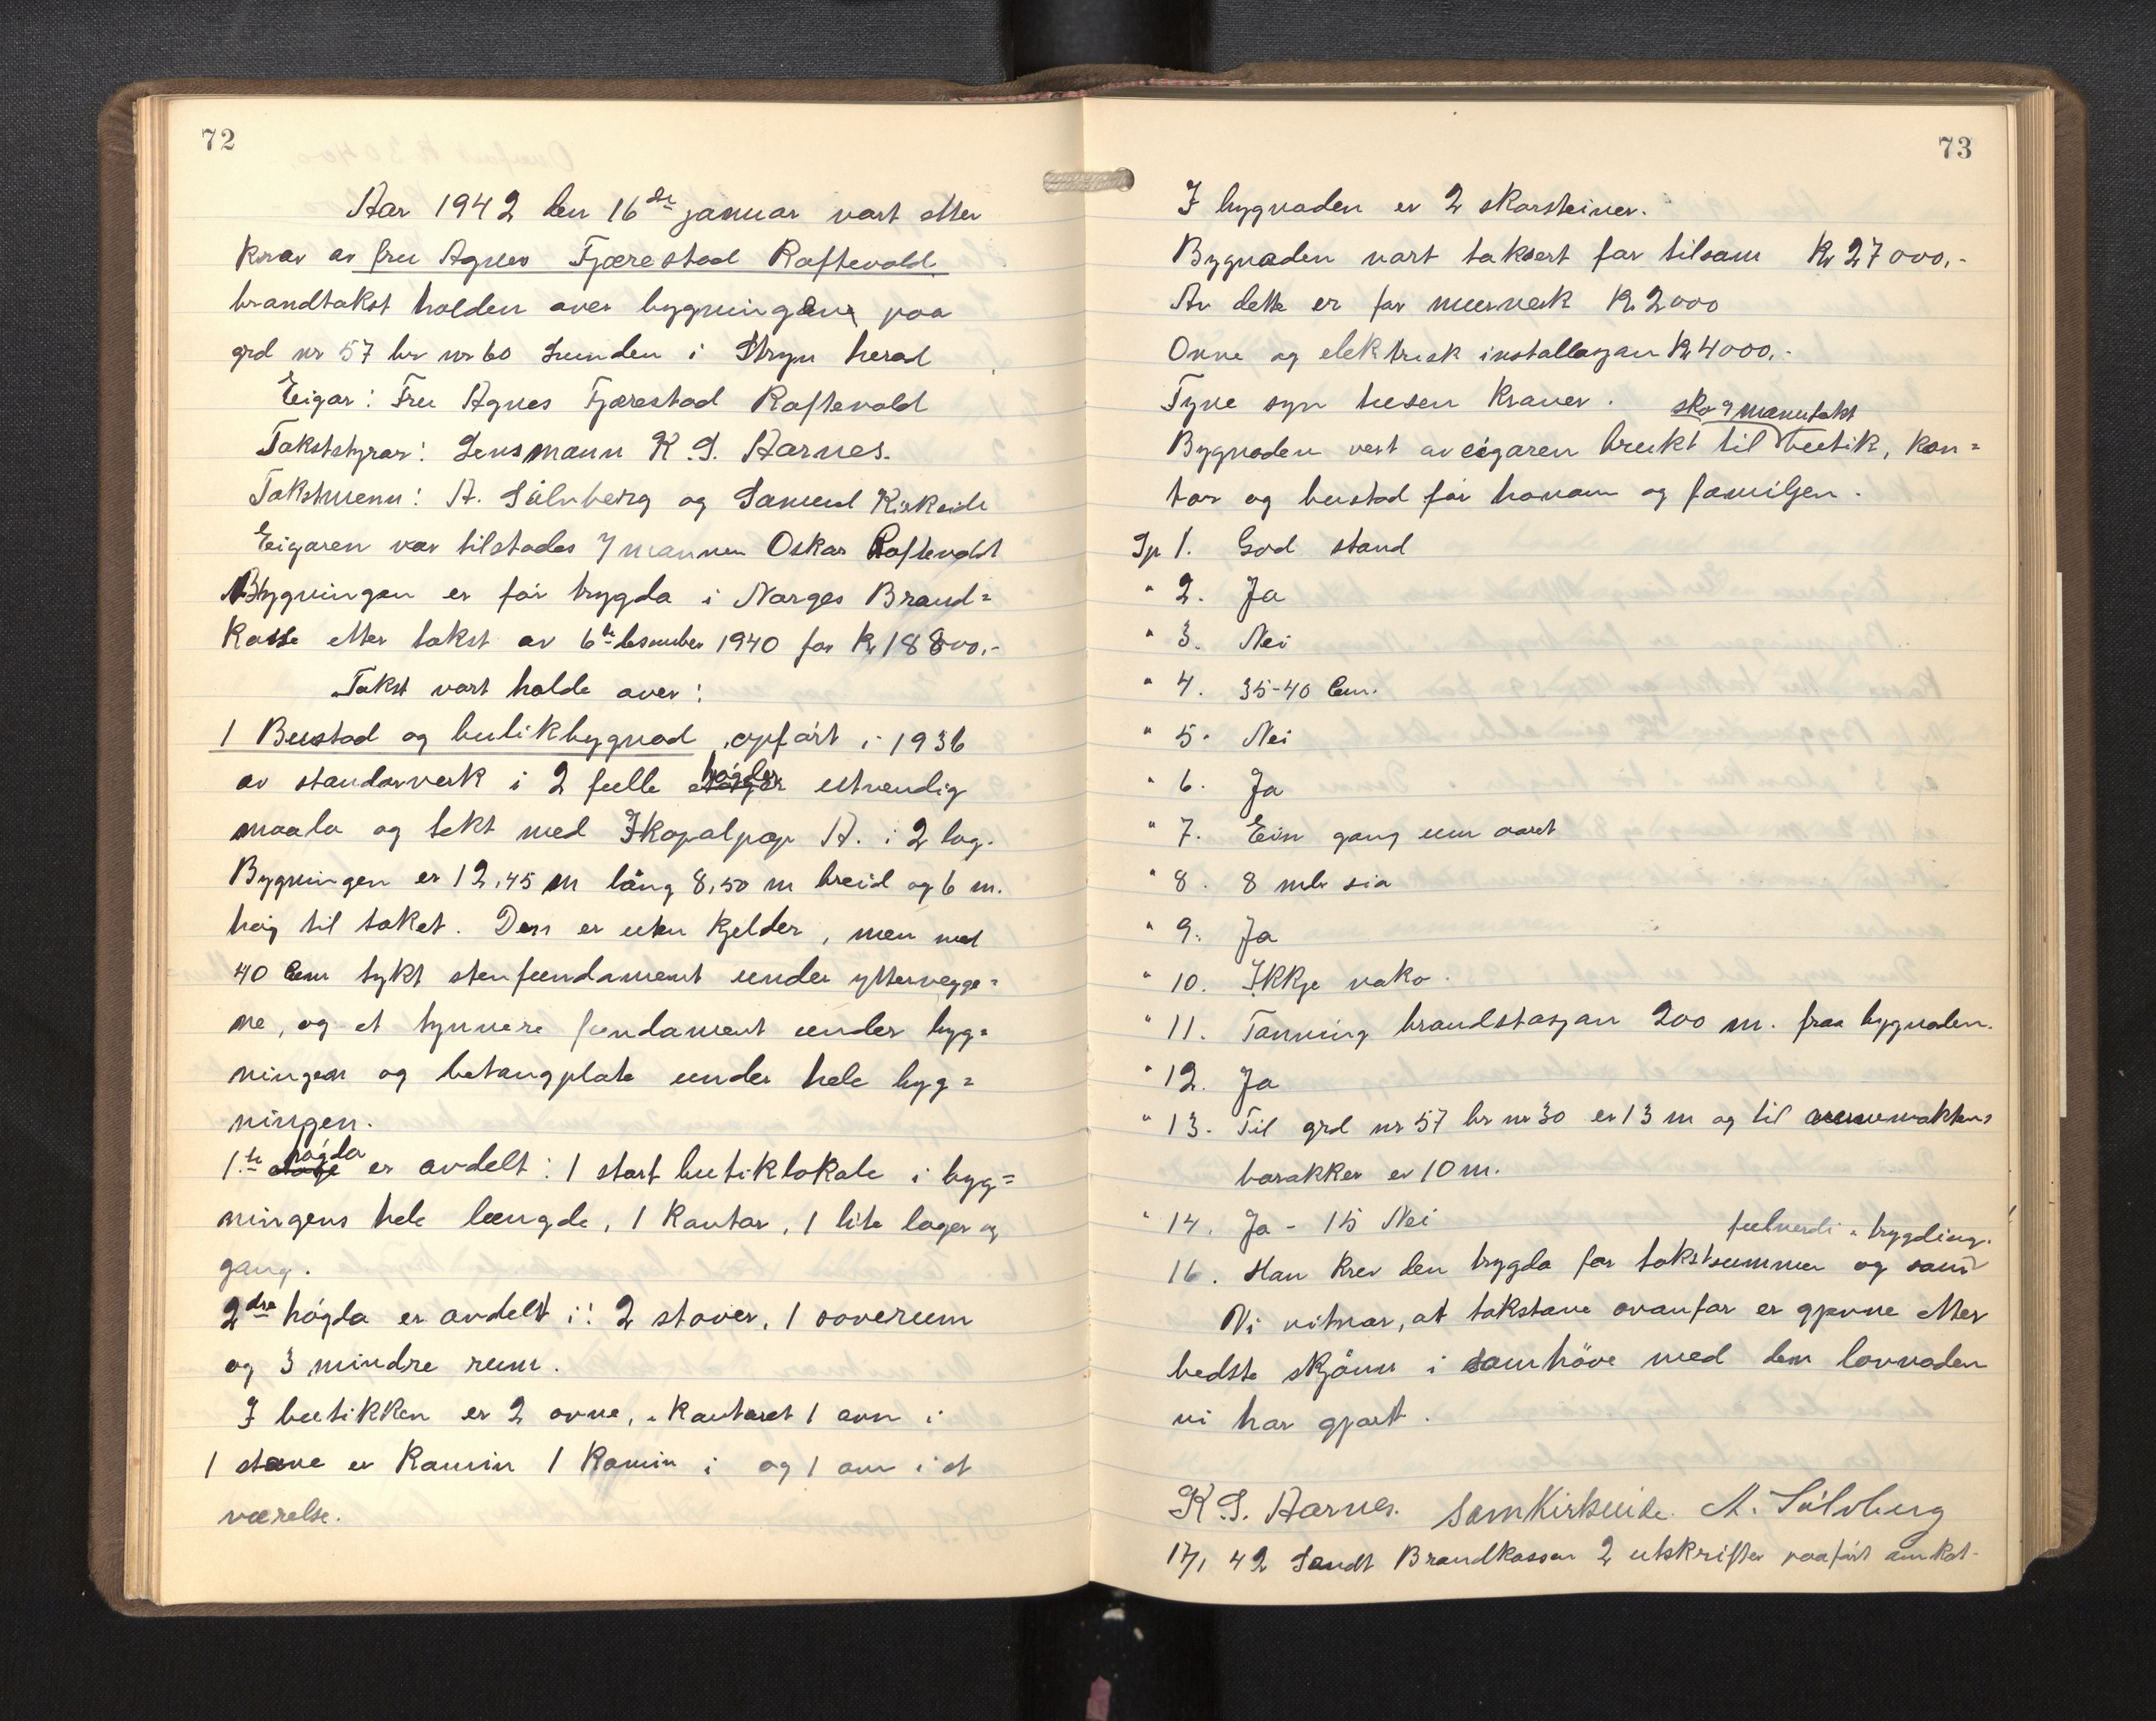 72
Aar 1942 den 16de januar vart etter
krav av fru Agnes Fjærestad Raftevold
brandtakst halden over bygningen paa
grd nr 57 br nr 60 Lunden i Stryn herad
Eigar: Fru Agnes Fjærestad Raftevold
Takststyrar: Lensmann K. S. Aarnes.
Takstmenn: A. Sølvberg og Samuel Kirkeide
Eigaren var tilstades ved mannen Oskar Raftevold
Bygningen er før trygda i Norges Brand=
kasse etter takst av 6te desember 1940 for kr 18800,-
Takst vart halde over:
1 Bustad og butikbygnad, opført i 1936
av standarverk i 2 fulle høgder utvendig
maala og tekt med Ikopalpap A. i 2 lag.
Bygningen er 12,45 m lang 8,50 m breid og 6 m.
høg til taket. Den er uten kjelder, men med
40 Cem tykt stenfundament under yttervegge=
ne, og et tynnere fundament under byg=
ningen og betongplate under hele byg=
ningen.
1.te høgda er avdelt: 1 stort butiklokale i byg=
ningens hele længde, 1 kontor, 1 lite lager og
gang.
2dre høgda er avdelt i: 2 stover, 1 soverum
og 3 mindre rum.
I butikken er 2 ovne, i kontoret 1 ovn i
1 stove er kamin 1 kamin i og 1 ovn i et
værelse.
73
I bygnaden er 2 skorsteiner.
Bygnaden vart taksert for tilsam kr 27000,-
Av dette er for murverk kr 2000
Ovne og elektrisk installasjon kr 4000,-
Tyve syn husen kraner.
sko og manufakt
Bygnaden vert av eigaren brukt til butik, kon=
tor og bustad før honom og familjen.
Sp 1. God stand
" 2. Ja
" 3. Nei
" 4. 35-40 Cem.
" 5. Nei
" 6. Ja
" 7. Ein gang um aaret
" 8. 8 mb sia
" 9. Ja
" 10. Ikkje vako.
" 11. Tonning brandstasjon 200 m. fraa bygnaden.
" 12. Ja
" 13. Til grd nr 57 br nr 30 er 13 m og til
barakker er 10 m.
" 14. Ja - 15 Nei
fulverdi - trygding.
16. Han krev den trygda for takstsummen og som
Vi vitnar, at takstane ovanfor er gjevne etter
bedste skjønn i samhøve med den lovnaden
vi har gjort.
K. S. Aarnes. Sam Kirkeide. A. Sølvberg
17/1 42 Sendt Brandkassen 2 utskrifter paaført